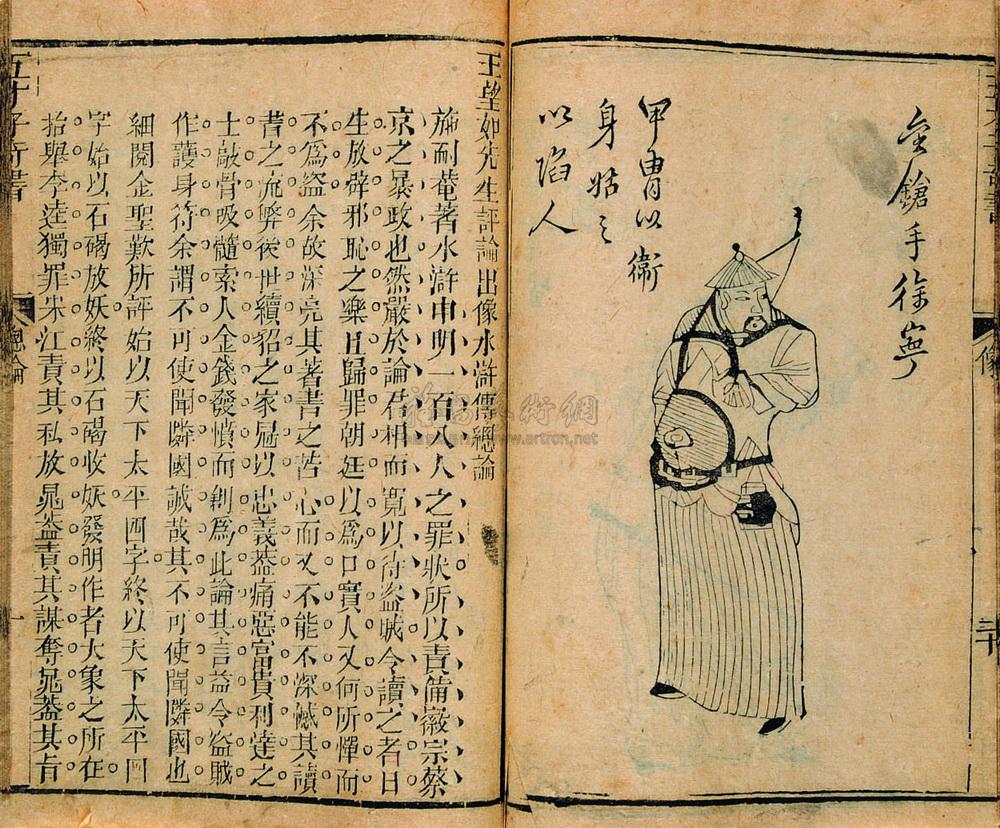 金鎗手徐寧
甲胄以衛
身姑之
以陷人
像
三十
王望如先生評論出像水滸傳總論
施耐菴著水滸申明一百八人之罪狀所以責備徽宗蔡
京之暴政也然嚴於論君相而寬以待盜賊令讀之者日
生放辟邪恥之樂且歸罪朝廷以爲口實人又何所憚而
不爲盜余故深亮其著書之苦心而又不能不深憾其讀
書之流弊後世續貂之家冠以忠義蓋痛惡富貴利達之
士敲骨吸髓索人金錢發憤而創爲此論其言益令盜賊
作護身符余謂不可使聞隣國誠哉其不可使聞隣國也
細閱金聖歎所評始以天下太平四字終以天下太平四
字始以石碣放妖終以石碣收妖發明作者大象之所在
抬舉李逵獨罪宋江責其私放晁蓋責其謀奪晁蓋其旨
五才子奇書
總論
一
雅昌藝術網
www.artron.net